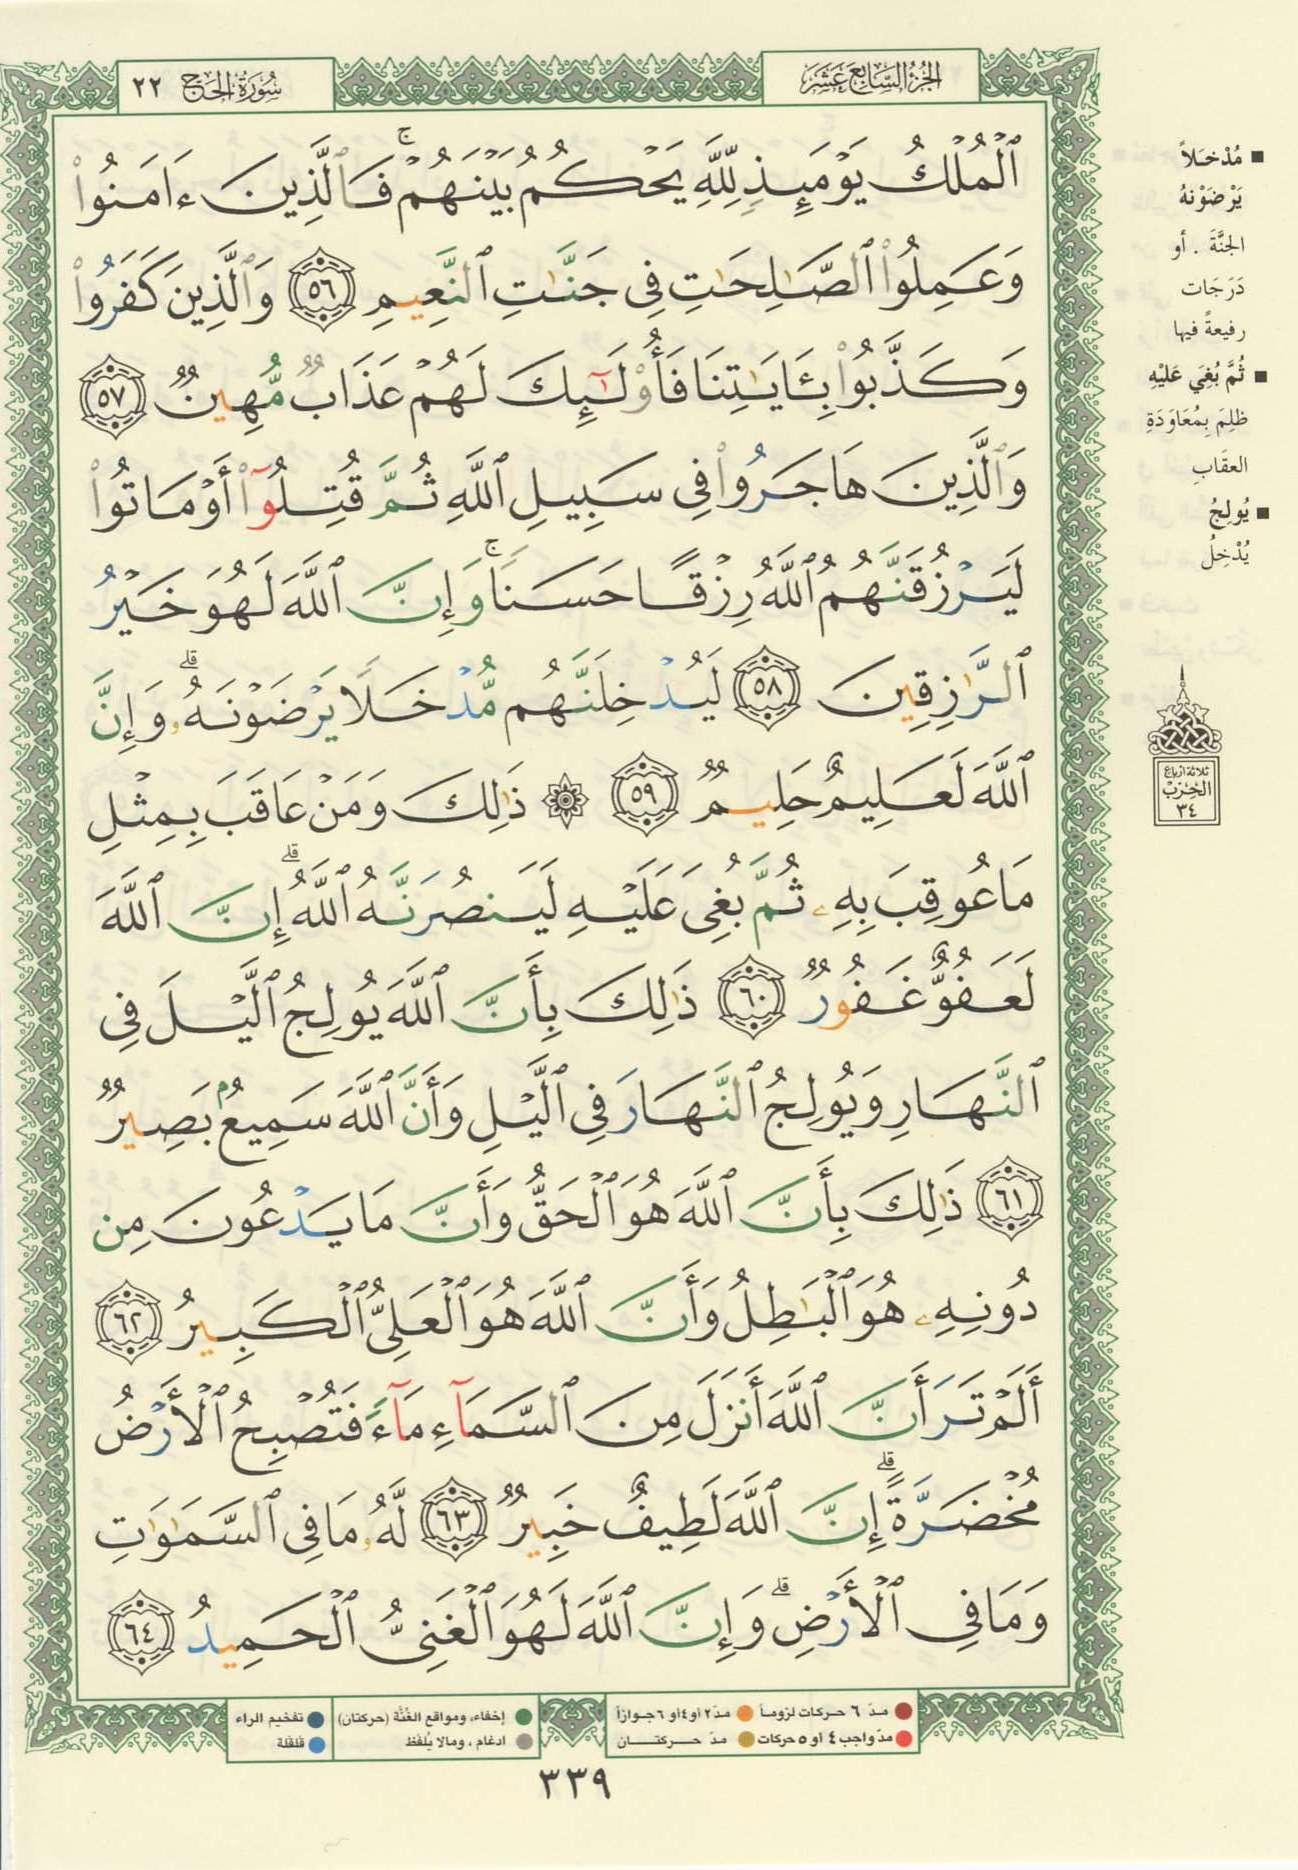 سُورَةُ الحَجّ ٢٢
الجُزءُ السَّابِعَ عَشَرَ
ٱلْمُلْكُ يَوْمَئِذٍ لِّلَّهِ يَحْكُمُ بَيْنَهُمْ ۚ فَٱلَّذِينَ ءَامَنُوا۟
وَعَمِلُوا۟ ٱلصَّـٰلِحَـٰتِ فِى جَنَّـٰتِ ٱلنَّعِيمِ ٥٦ وَٱلَّذِينَ كَفَرُوا۟
وَكَذَّبُوا۟ بِـَٔايَـٰتِنَا فَأُو۟لَـٰٓئِكَ لَهُمْ عَذَابٌ مُّهِينٌ ٥٧
وَٱلَّذِينَ هَاجَرُوا۟ فِى سَبِيلِ ٱللَّهِ ثُمَّ قُتِلُوٓا۟ أَوْ مَاتُوا۟
لَيَرْزُقَنَّهُمُ ٱللَّهُ رِزْقًا حَسَنًا ۚ وَإِنَّ ٱللَّهَ لَهُوَ خَيْرُ
ٱلرَّٰزِقِينَ ٥٨ لَيُدْخِلَنَّهُم مُّدْخَلًا يَرْضَوْنَهُۥ ۗ وَإِنَّ
ٱللَّهَ لَعَلِيمٌ حَلِيمٌ ٥٩ ۞ ذَٰلِكَ وَمَنْ عَاقَبَ بِمِثْلِ
مَا عُوقِبَ بِهِۦ ثُمَّ بُغِىَ عَلَيْهِ لَيَنصُرَنَّهُ ٱللَّهُ ۗ إِنَّ ٱللَّهَ
لَعَفُوٌّ غَفُورٌ ٦٠ ذَٰلِكَ بِأَنَّ ٱللَّهَ يُولِجُ ٱلَّيْلَ فِى
ٱلنَّهَارِ وَيُولِجُ ٱلنَّهَارَ فِى ٱلَّيْلِ وَأَنَّ ٱللَّهَ سَمِيعٌۢ بَصِيرٌ
٦١ ذَٰلِكَ بِأَنَّ ٱللَّهَ هُوَ ٱلْحَقُّ وَأَنَّ مَا يَدْعُونَ مِن
دُونِهِۦ هُوَ ٱلْبَـٰطِلُ وَأَنَّ ٱللَّهَ هُوَ ٱلْعَلِىُّ ٱلْكَبِيرُ ٦٢
أَلَمْ تَرَ أَنَّ ٱللَّهَ أَنزَلَ مِنَ ٱلسَّمَآءِ مَآءً فَتُصْبِحُ ٱلْأَرْضُ
مُخْضَرَّةً ۗ إِنَّ ٱللَّهَ لَطِيفٌ خَبِيرٌ ٦٣ لَّهُۥ مَا فِى ٱلسَّمَـٰوَٰتِ
وَمَا فِى ٱلْأَرْضِ ۗ وَإِنَّ ٱللَّهَ لَهُوَ ٱلْغَنِىُّ ٱلْحَمِيدُ ٦٤
■ مُدْخَلاً
يَرْضَوْنهُ
الجنَّةَ . أو
دَرَجَات
رفيعةً فيها
■ ثُمَّ بُغِيَ عَليْهِ
ظلِمَ بِمُعَاوَدَةِ
العقَابِ
■ يُولِجُ
يُدْخِلُ
ثلاثة أرباع
الحِزْب
٣٤
مدّ ٦ حركات لزوماً مدّ ٢ أو ٤ أو ٦ جوازاً
مدّ واجب ٤ أو ٥ حركات مدّ حركتان
إخفاء، ومواقع الغُنَّة (حركتان)
ادغام ، ومالا يُلفَظ
تفخيم الراء
قلقلة
٣٣٩